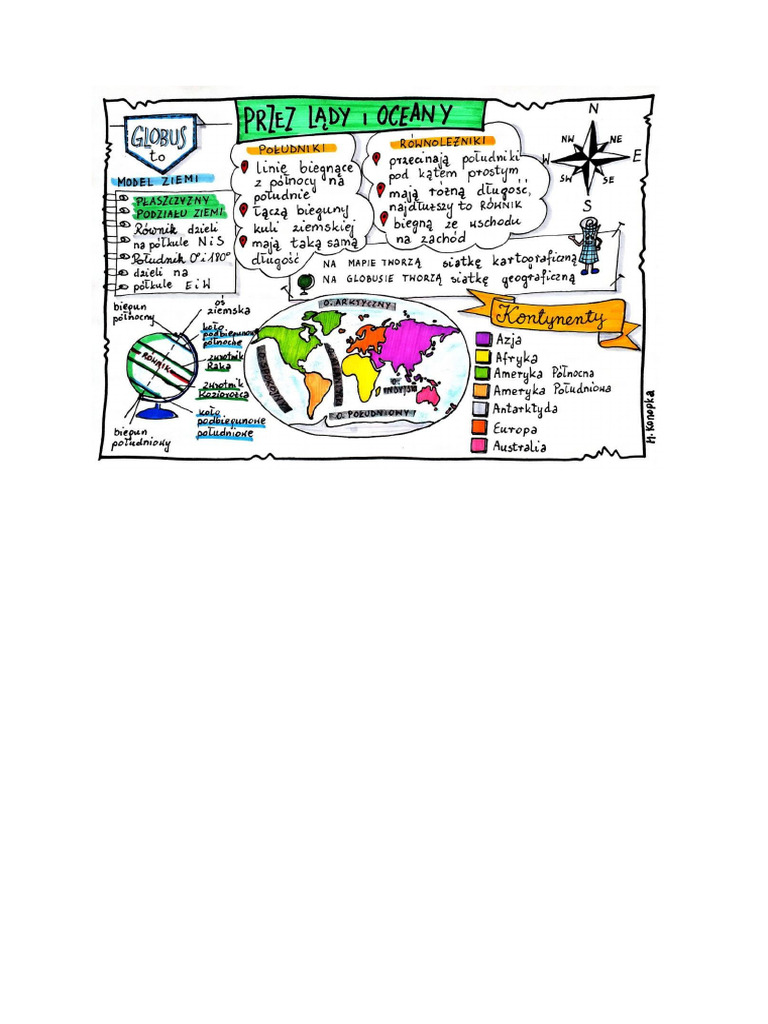 PRZEZ LĄDY i OCEANY
GLOBUS
to
MODEL ZIEMI
PŁASZCZYZNY
PODZIAŁU ZIEMI
Równik dzieli
na półkule N i S
Południk 0° i 180°
dzieli na
półkule E i W
POŁUDNIKI
linie biegnące
z północy na
południe
łączą bieguny
kuli ziemskiej
mają taką samą
długość
RÓWNOLEŻNIKI
przecinają południki
pod kątem prostym
mają różną długość,
najdłuższy to RÓWNIK
biegną ze wschodu
na zachód
N
NW NE
W E
SW SE
S
NA MAPIE TWORZĄ siatkę kartograficzną
NA GLOBUSIE TWORZĄ siatkę geograficzną
biegun
północny
oś
ziemska
koło
podbiegunowe
północne
zwrotnik
Raka
RÓWNIK
zwrotnik
Koziorożca
koło
podbiegunowe
południowe
biegun
południowy
O. ARKTYCZNY
O. SPOKOJNY
O. ATLANTYCKI
O. INDYJSKI
O. POŁUDNIOWY
Kontynenty
Azja
Afryka
Ameryka Północna
Ameryka Południowa
Antarktyda
Europa
Australia
M. Konopka